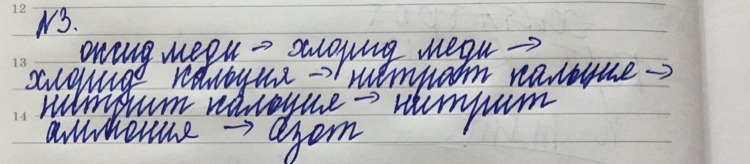 12
№3.
оксид меди → хлорид меди →
13
хлорид кальция → нитрат кальция →
нитрит кальция → нитрит
14
аммония → азот